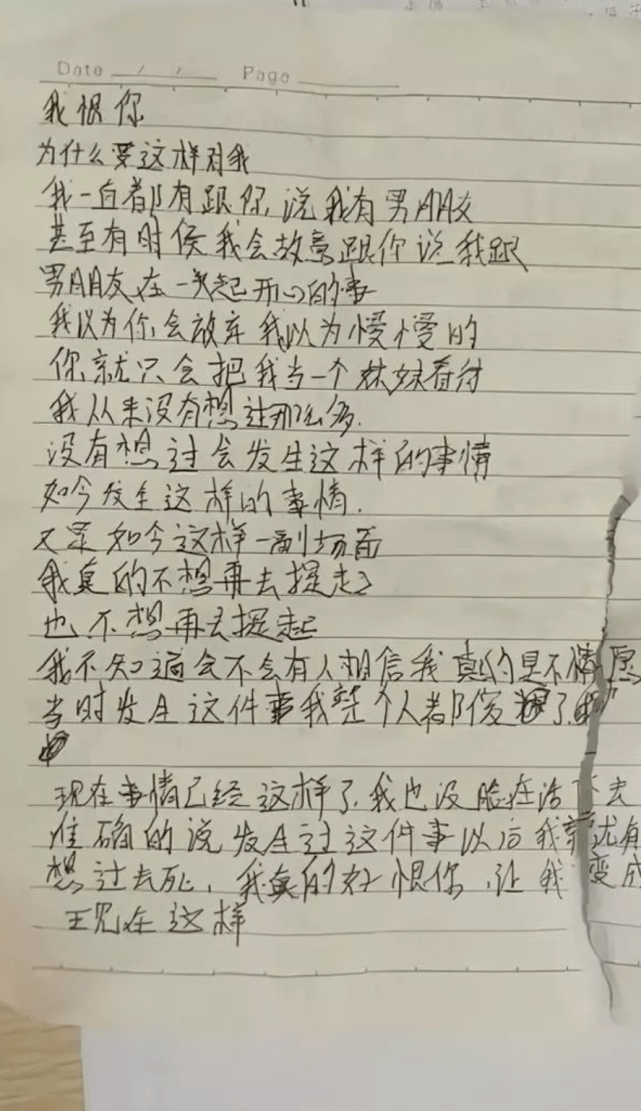 Date / / Page
我恨你
为什么要这样对我
我一直都有跟你说我有男朋友
甚至有时候我会故意跟你说我跟
男朋友在一起开心的事
我以为你会放弃我以为慢慢的
你就只会把我当一个妹妹看待
我从来没有想过那么多.
没有想过会发生这样的事情
如今发生这样的事情.
又是如今这样一副场面
我真的不想再去提起
也不想再去提起
我不知道会不会有人相信我真的是不情愿
当时发生这件事我整个人都傻了
现在事情已经这样了.我也没脸在活下去
准确的说发生过这件事以后我就有
想过去死,我真的好恨你,让我变成
现在这样